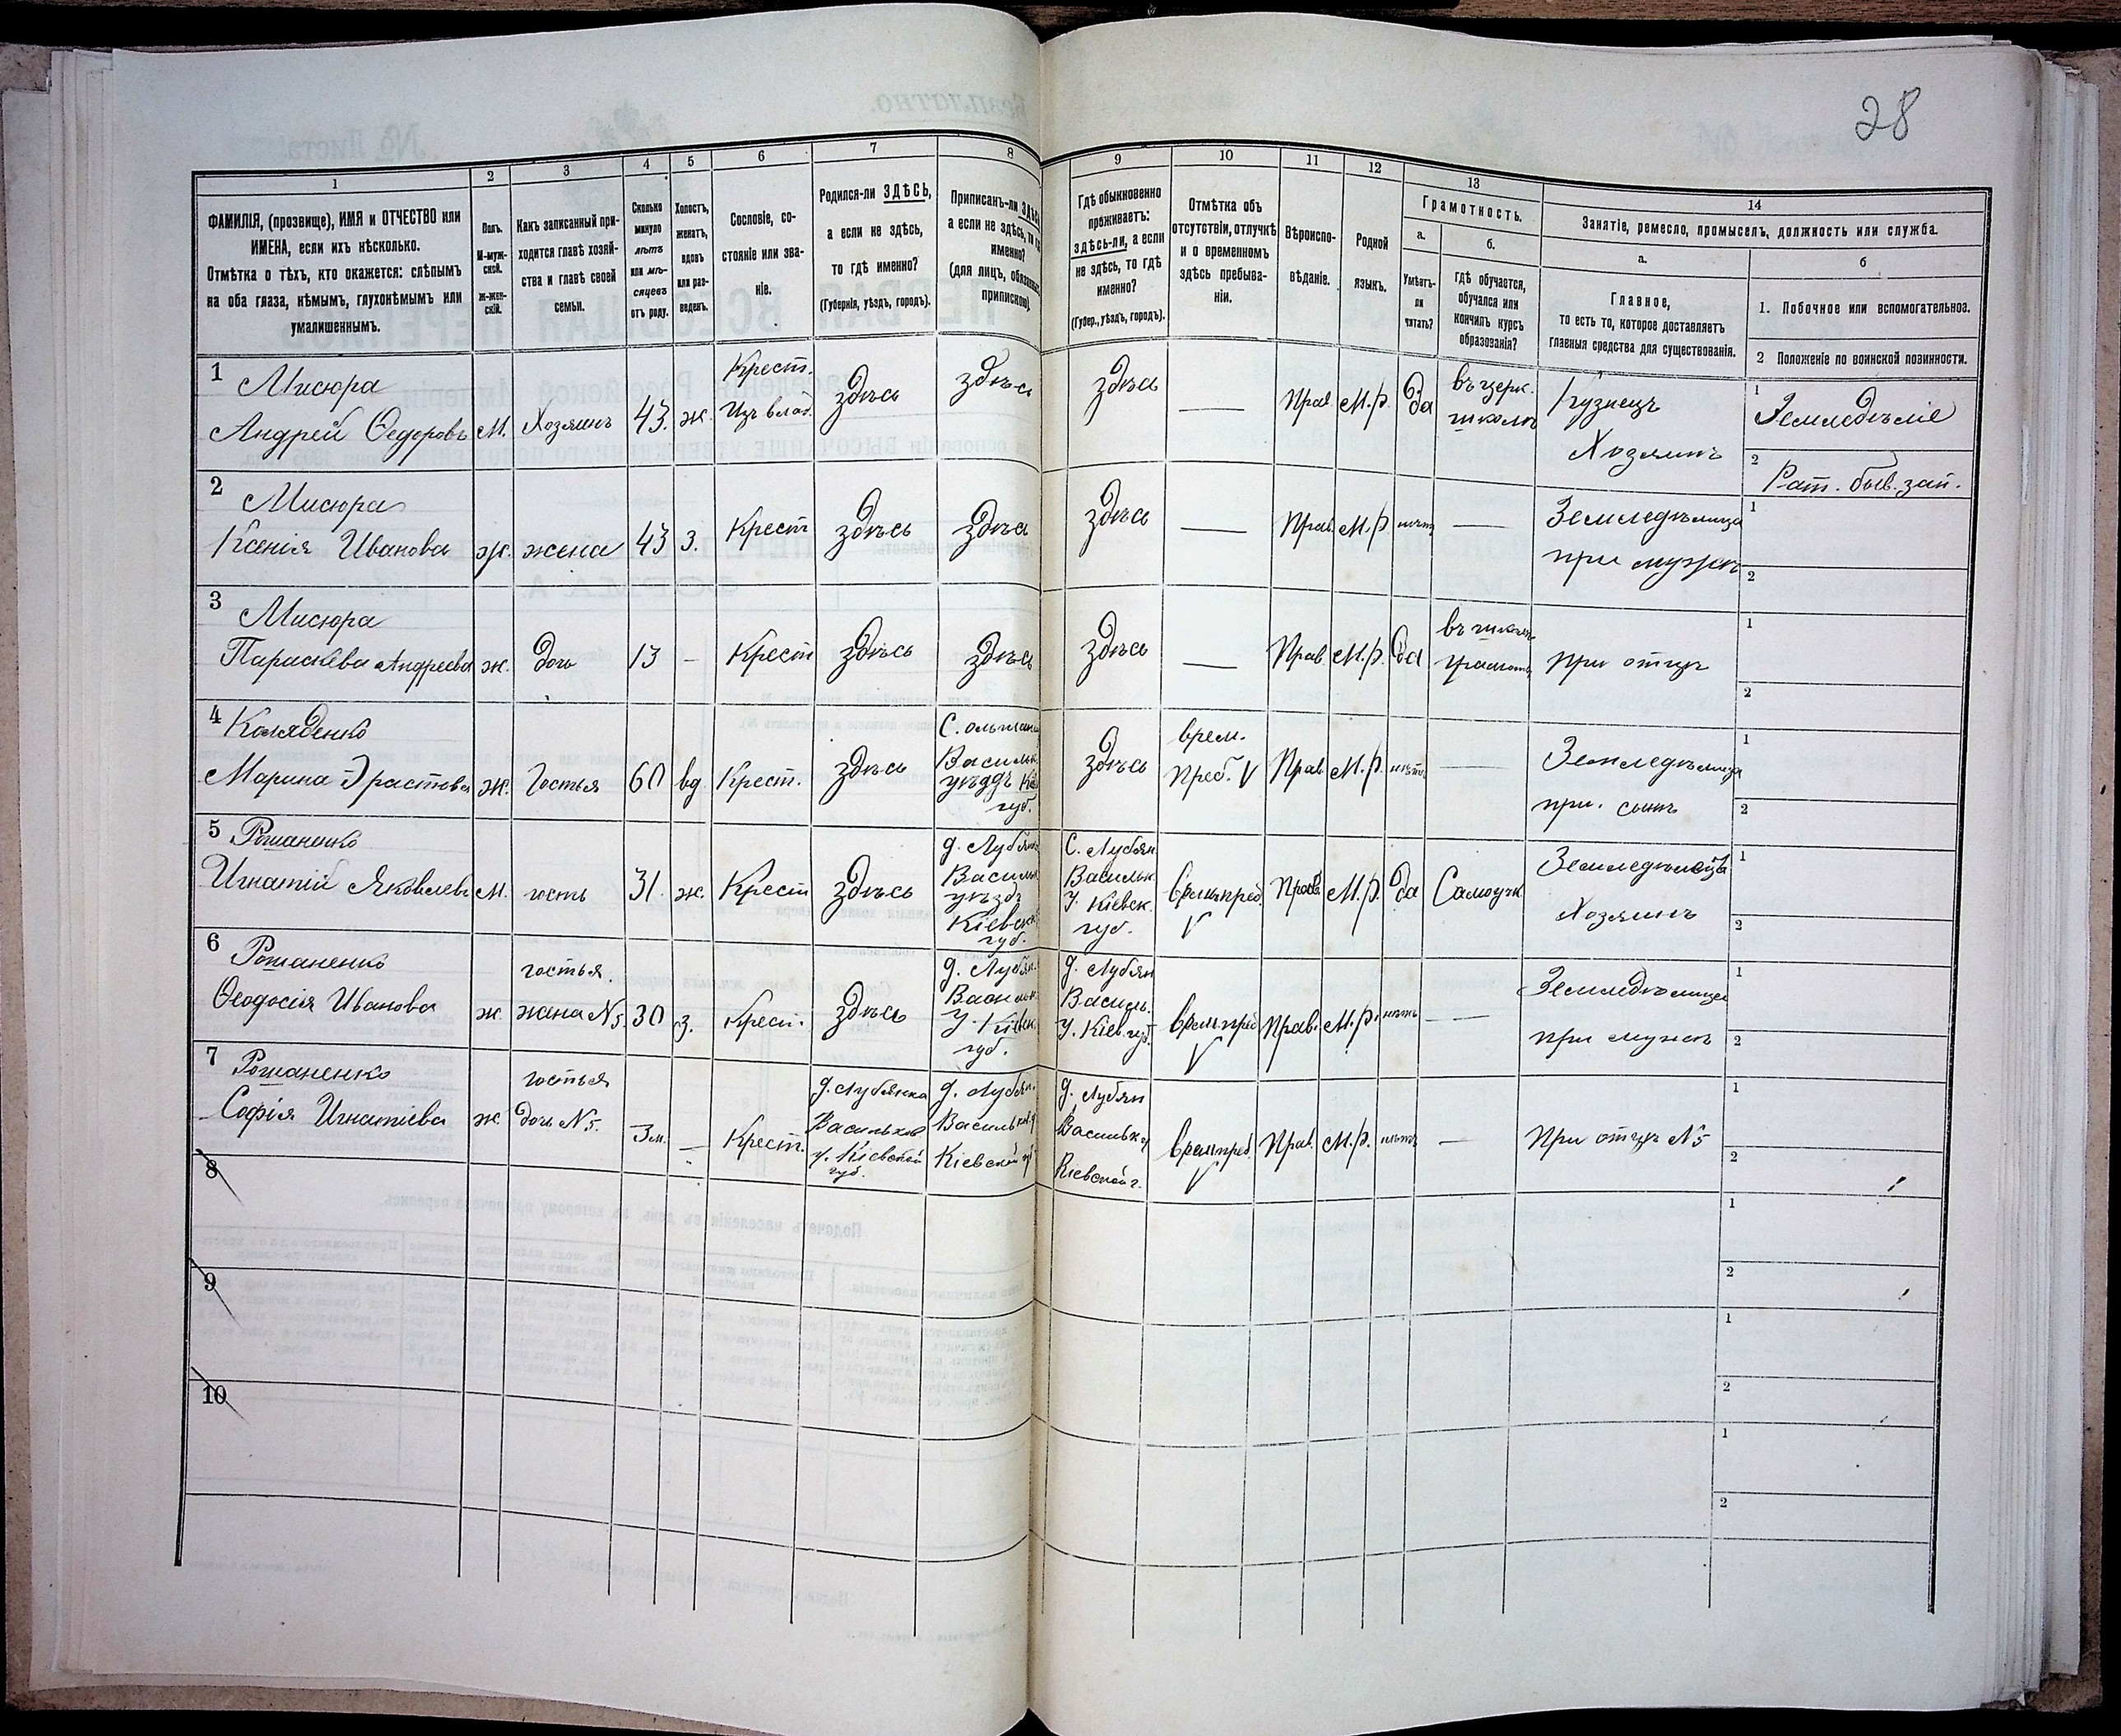 28
1
2
3
4
5
6
7
8
9
10
11
12
13
14
ФАМИЛІЯ, (прозвище), ИМЯ и ОТЧЕСТВО или
ИМЕНА, если ихъ нѣсколько.
Отмѣтка о тѣхъ, кто окажется: слѣпымъ
на оба глаза, нѣмымъ, глухонѣмымъ или
умалишеннымъ.
Полъ.
М-муж-
ской.
Ж-жен-
скій.
Какъ записанный при-
ходится главѣ хозяй-
ства и главѣ своей
семьи.
Сколько
минуло
лѣтъ
или мѣ-
сяцевъ
отъ роду.
Холостъ,
женатъ,
вдовъ
или раз-
веденъ.
Сословіе, со-
стояніе или зва-
ніе.
Родился-ли ЗДѢСЬ,
а если не здѣсь,
то гдѣ именно?
(Губернія, уѣздъ, городъ).
Приписанъ-ли ЗДѢСЬ
а если не здѣсь, то гдѣ
именно?
(для лицъ, обязанныхъ
припискою).
Гдѣ обыкновенно
проживаетъ:
здѣсь-ли, а если
не здѣсь, то гдѣ
именно?
(Губер., уѣздъ, городъ).
Отмѣтка объ
отсутствіи, отлучкѣ
и о временномъ
здѣсь пребыва-
ніи.
Вѣроиспо-
вѣданіе.
Родной
языкъ.
Грамотность.
а.
Умѣетъ-
ли
читать?
б.
Гдѣ обучается,
обучался или
кончилъ курсъ
образованія?
Занятіе, ремесло, промыселъ, должность или служба.
а.
Главное,
то есть то, которое доставляетъ
главныя средства для существованія.
б
1. Побочное или вспомогательное.
2 Положеніе по воинской повинности.
1
Мисюра
Андрей Ѳедоровъ
М.
Хозяинъ
43.
ж.
Крест.
Изъ влад.
здѣсь
здѣсь
здѣсь
—
Прав
М.р.
да
въ церк.
школѣ
Кузнецъ
Хозяинъ
1
Земледѣліе
2
Рат. быв. зап.
2
Мисюра
Ксенія Иванова
ж.
жена
43
з.
Крест
здѣсь
здѣсь
здѣсь
—
Прав.
М.р.
нѣтъ
—
Земледѣлица
при мужѣ
1
2
3
Мисюра
Параскева Андреева
ж.
дочь
13
–
Крест
здѣсь
здѣсь
здѣсь
—
Прав
М.р.
да
въ школѣ
грамоты
при отцѣ
1
2
4
Коляденко
Марина Эрастова
ж.
Гостья
60
вд
Крест.
здѣсь
Васильк.
уѣздъ
губ.
здѣсь
врем.
Преб. V
Прав
М.р.
нѣтъ
—
Земледѣлица
при. сынѣ
1
2
5
Романенко
Игнатій Яковлевъ
М.
гость
31.
ж.
Крест
здѣсь
д. Лубянк
Васильк
уѣздъ
Кіевск
губ.
С. Лубян
Васильк
У. Кіевск.
губ.
врем преб.
V
Прав
М.р.
да
Самоучк
Хозяинъ
1
2
6
Романенко
Ѳеодосія Иванова
ж.
гостья.
жена №5.
30
з.
Крест.
здѣсь
д. Лубян.
Васильк.
у. Кіевск.
губ.
д. Лубян
Васильк.
у. Кіев. губ.
врем преб
V
Прав.
М.р.
нѣтъ
—
Земледѣлица
при мужѣ
1
2
7
Романенко
Софія Игнатіева
ж
гостья
дочь №5.
3 м.
—
Крест.
д. Лубянка
Васильков
у. Кіевской
губ.
д. Лубян.
Васильк. у
Кіевской г
д. Лубян
Васильк у
Кіевской г.
врем преб.
V
Прав.
М.р.
нѣтъ
—
При отцѣ №5
1
2
8
1
2
9
1
2
10
1
2